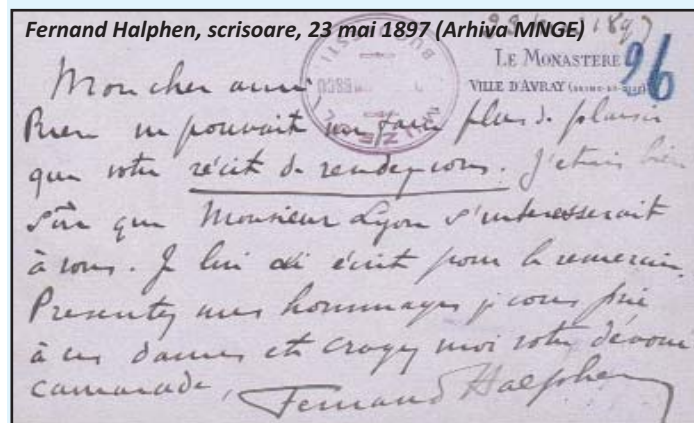 Fernand Halphen, scrisoare, 23 mai 1897 (Arhiva MNGE)
1897
LE MONASTÈRE
96
VILLE D'AVRAY (SEINE-ET-OISE)
Mon cher ami
Rien ne pouvait me faire plus de plaisir
que votre récit de rendez vous. J'étais bien
sûr que Monsieur Lyon s'interesserait
à vous. Je lui ai écrit pour le remercier.
Presentez mes hommages je vous prie
à ces dames et croyez moi votre dévoué
camarade,
Fernand Halphen